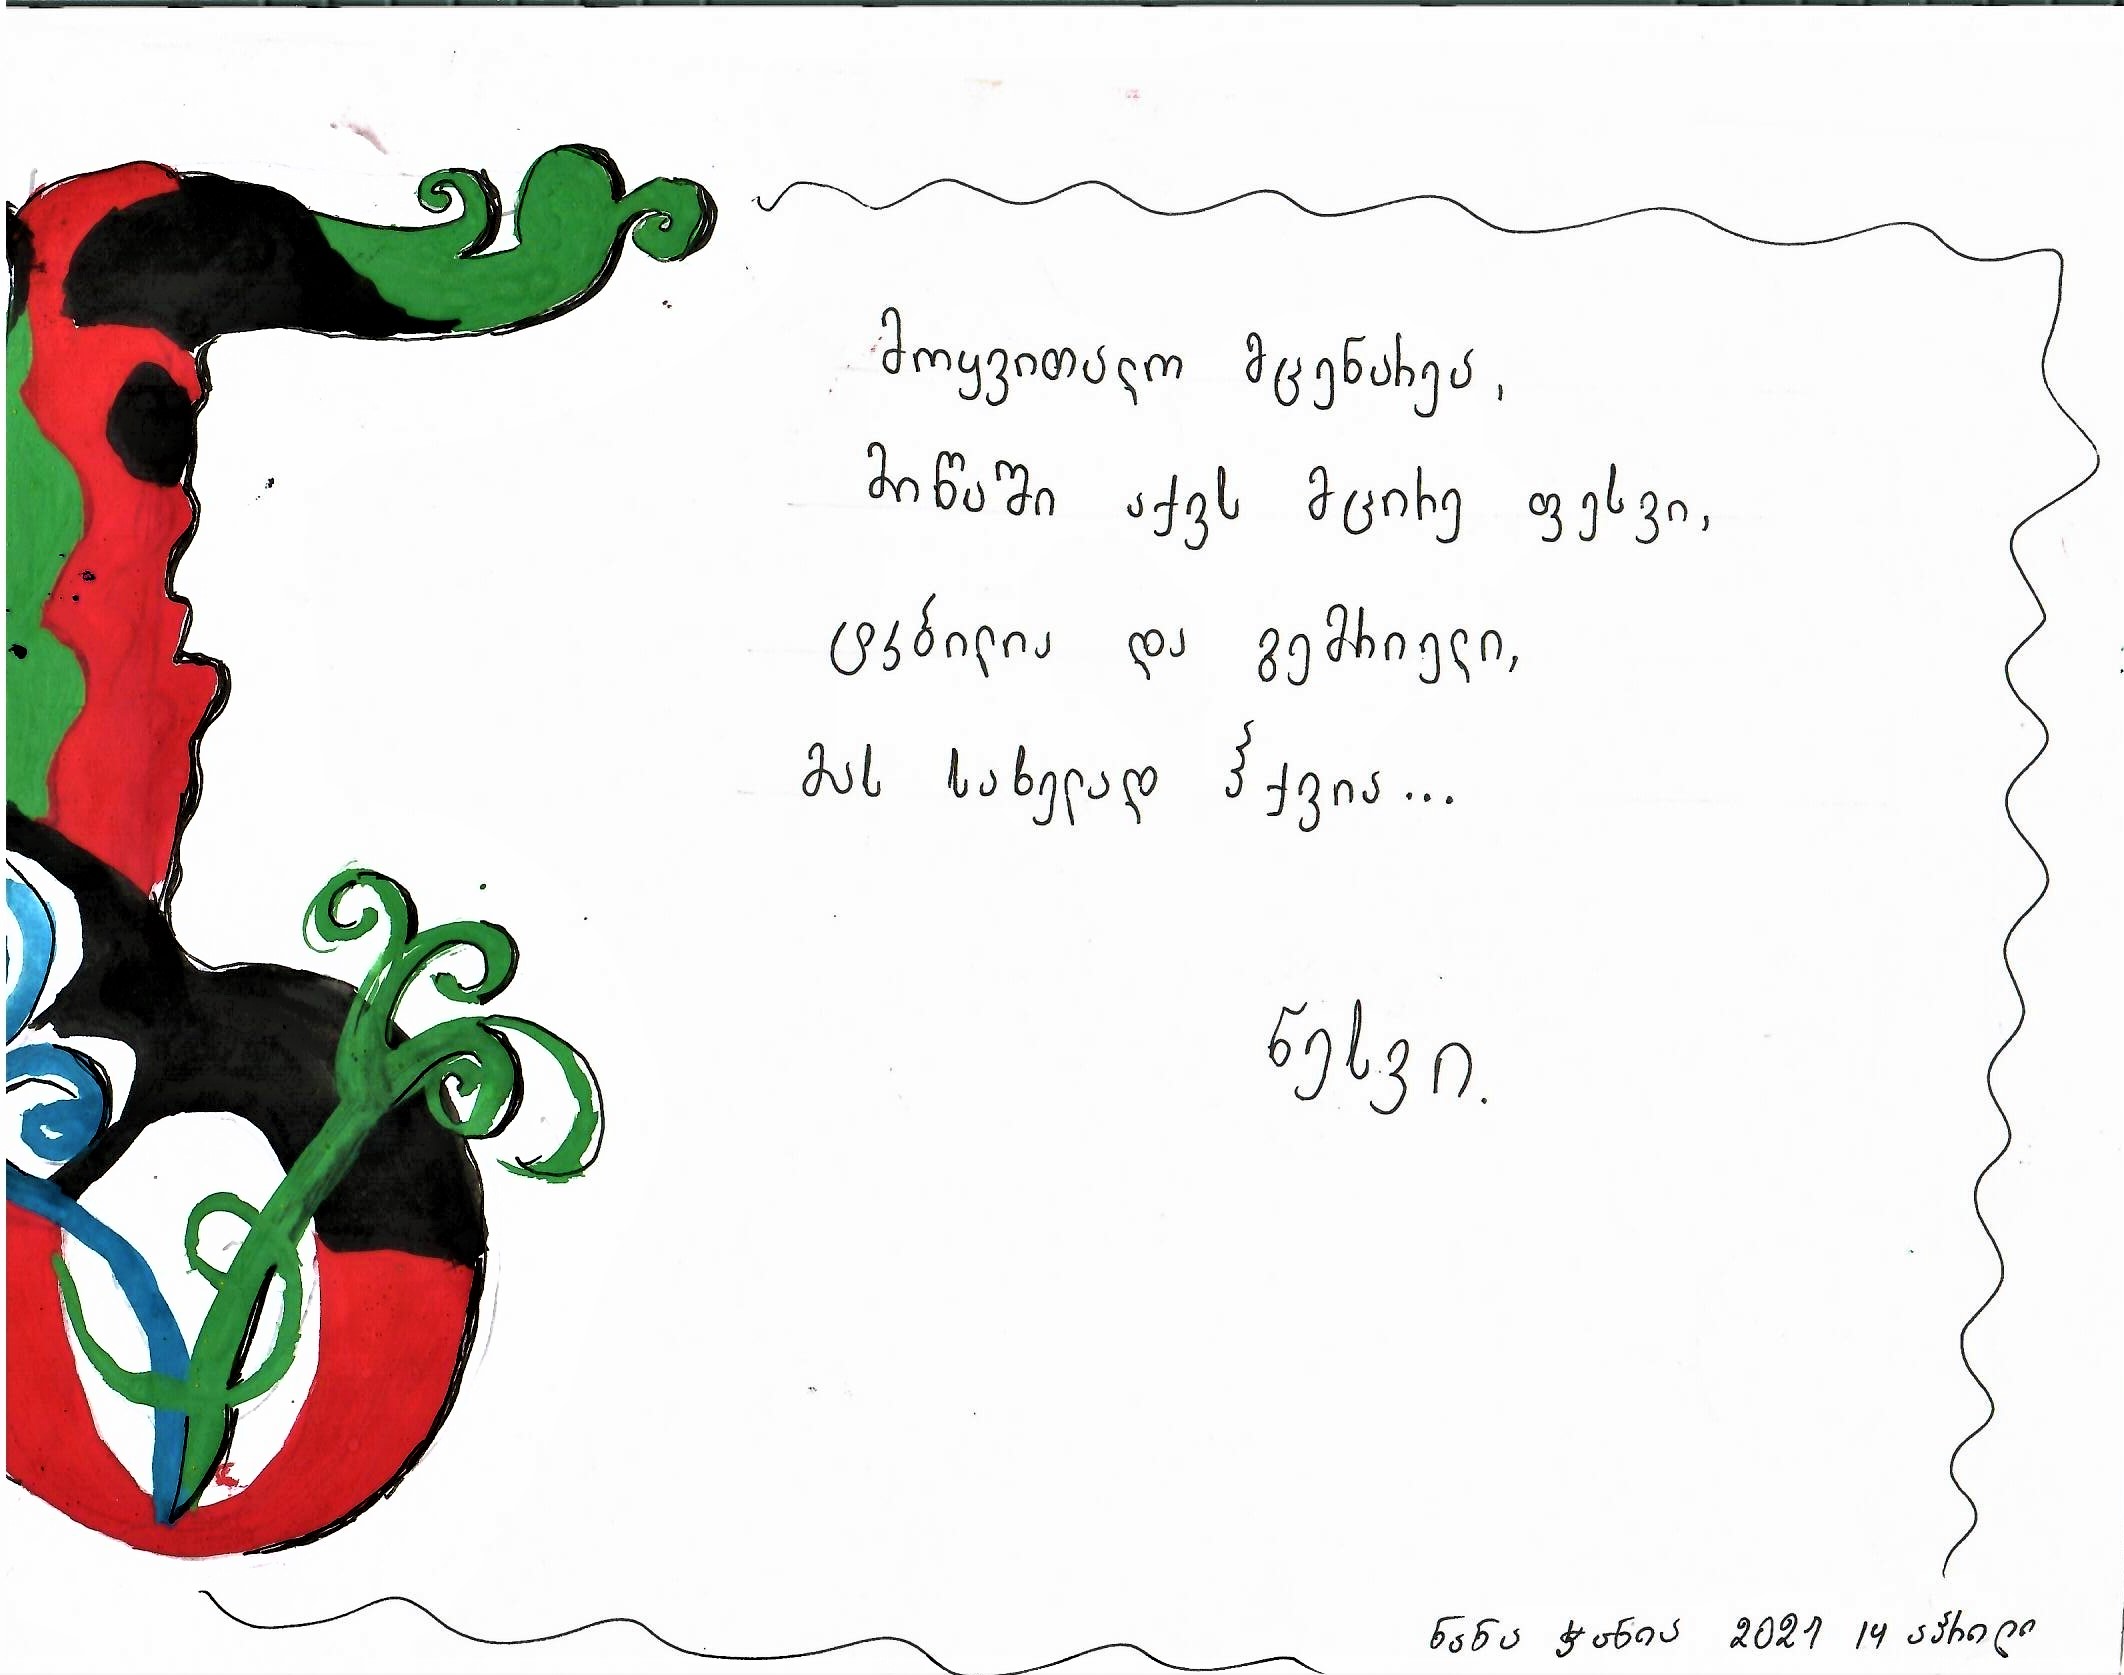 მოყვითალო მცენარეა,
მიწაში აქვს მცირე ფესვი,
ტკბილია და გემრიელი,
მას სახელად ჰქვია...
ნესვი.
ნანა ჭანია 2021 14 აპრილი